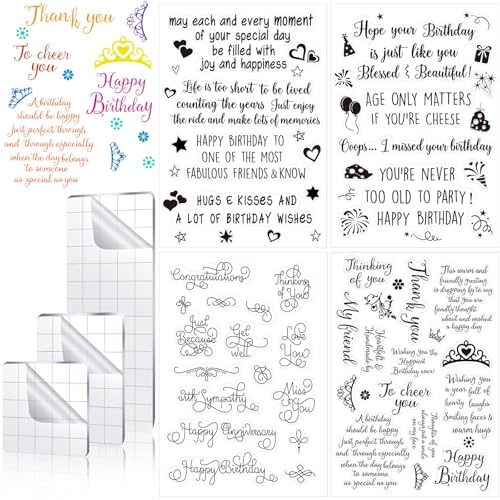 Thank you
To cheer
you
Happy
Birthday
A birthday
should be happy
just perfect through
and through especially
when the day belongs
to someone
as special as you
may each and every moment
of your special day
be filled with
joy and happiness
Life is too short to be lived
counting the years Just enjoy
the ride and make lots of memories
HAPPY BIRTHDAY TO
ONE OF THE MOST
FABULOUS FRIENDS & KNOW
HUGS & KISSES AND
A LOT OF BIRTHDAY WISHES
Hope your Birthday
is just like you
Blessed & Beautiful!
AGE ONLY MATTERS
IF YOU'RE CHEESE
Oops... I missed your birthday
YOU'RE NEVER
TOO OLD TO PARTY!
HAPPY BIRTHDAY
Congratulations
Thinking
of You
Just
Because
Get
well
Love
You
With Sympathy
Miss
You
Happy Anniversary
Happy Birthday
Thinking
of you
Thank you
My friend
Heartfelt &
Handmade by
This warm and
friendly greeting
is dropping by to say
that you are
fondly thought
about when wished
a happy day
Wishing you the
Happiest
Birthday ever!
To cheer
you
A birthday
should be happy
just perfect through
and through especially
when the day belongs
to someone
as special as you
thoughts of you
always put a smile
on my face
Wishing you
a year full of
hearty laughs
Smiling faces &
warm hugs
Happy
Birthday